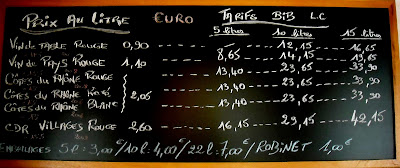 PRIX AU LITRE EURO TARIFS BIB L.C
5 litres 10 litres 15 litres
VIN DE TABLE ROUGE 0,90 12,15 16,65
VIN DE PAYS ROUGE 1,10 8,65 14,15 19,65
CÔTES DU RHÔNE ROUGE 13,40 23,65 33,90
CÔTES DU RHÔNE ROSÉ 2,05 13,40 23,65 33,90
CÔTES DU RHÔNE BLANC 13,40 23,65 33,90
CDR VILLAGES ROUGE 2,60 16,15 29,15 42,15
EMBALLAGES 5l: 3,00€/10l: 4,00€/22l: 7,00€/ROBINET 1,00€